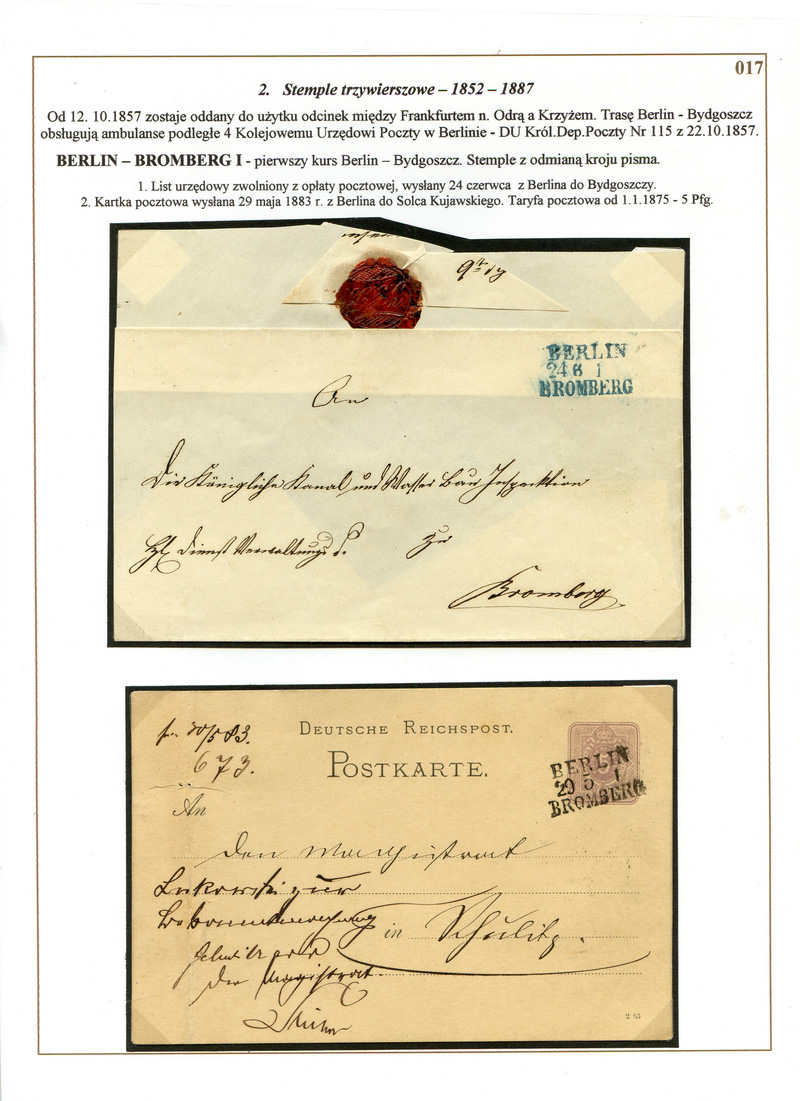 017
2. Stemple trzywierszowe – 1852 - 1887
Od 12. 10.1857 zostaje oddany do użytku odcinek między Frankfurtem n. Odrą a Krzyżem. Trasę Berlin - Bydgoszcz
obsługują ambulanse podległe 4 Kolejowemu Urzędowi Poczty w Berlinie - DU Król.Dep.Poczty Nr 115 z 22.10.1857.
BERLIN – BROMBERG I - pierwszy kurs Berlin – Bydgoszcz. Stemple z odmianą kroju pisma.
1. List urzędowy zwolniony z opłaty pocztowej, wysłany 24 czerwca z Berlina do Bydgoszczy.
2. Kartka pocztowa wysłana 29 maja 1883 r. z Berlina do Solca Kujawskiego. Taryfa pocztowa od 1.1.1875 - 5 Pfg.
BERLIN
24 6 1
BROMBERG
An
Die Königliche Kanal und Wasser Bau Inspektion
zu
Bromberg
30/5 83.
673.
DEUTSCHE REICHSPOST.
POSTKARTE.
BERLIN
29 5 1
BROMBERG
An
den Magistrat
zur
in Schulitz.
Der Magistrat.
2 83